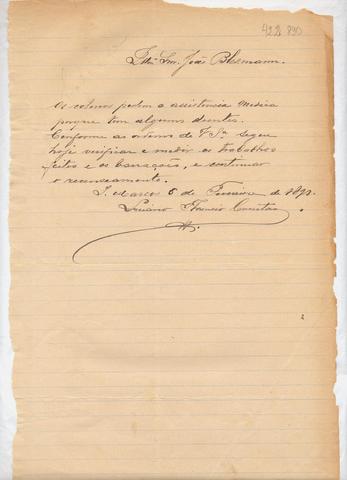 422 890
Illmo Snr. João Blusmann.
Os colonos pedem a assistencia medica
porque tem alguns doentes.
Conforme as ordens de V. Sa. segui
hoje verificar e medir os trabalhos
feitos e os barracões, e continuar
o recenseamento.
5 de Fevereiro de
Luciano